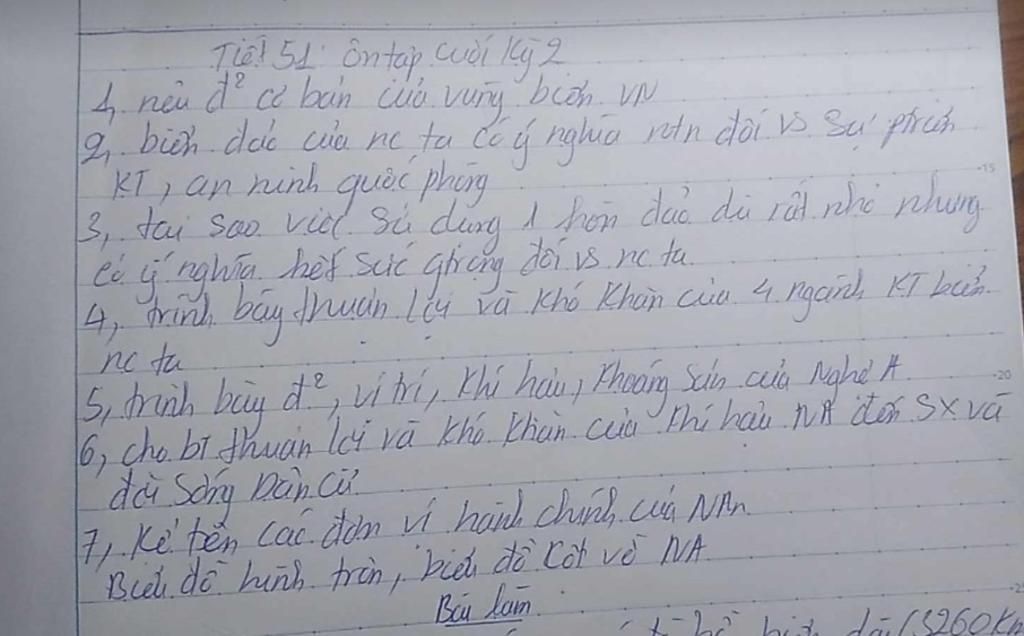 Tiết 51: Ôn tập cuối kỳ 2
1, nêu đ² cơ bản của vùng biển VN
2, biển đảo của nc ta có ý nghĩa ntn đối vs sự ptriển
KT, an ninh quốc phòng
3, tại sao việc sử dụng 1 hòn đảo dù rất nhỏ nhưng
có ý nghĩa hết sức qtrọng đối vs nc ta
4, trình bày thuận lợi và khó khăn của 4 ngành KT biển
nc ta
5, trình bày đ², vị trí, khí hậu, khoáng sản của Nghệ A
6, cho bt thuận lợi và khó khăn của khí hậu NA đến SX và
đời sống Dân cư
7, Kể tên các đơn vị hành chính của NAn
Biểu đồ hình tròn, biểu đồ cột về NA
Bài làm
bờ biển dài (3260Km